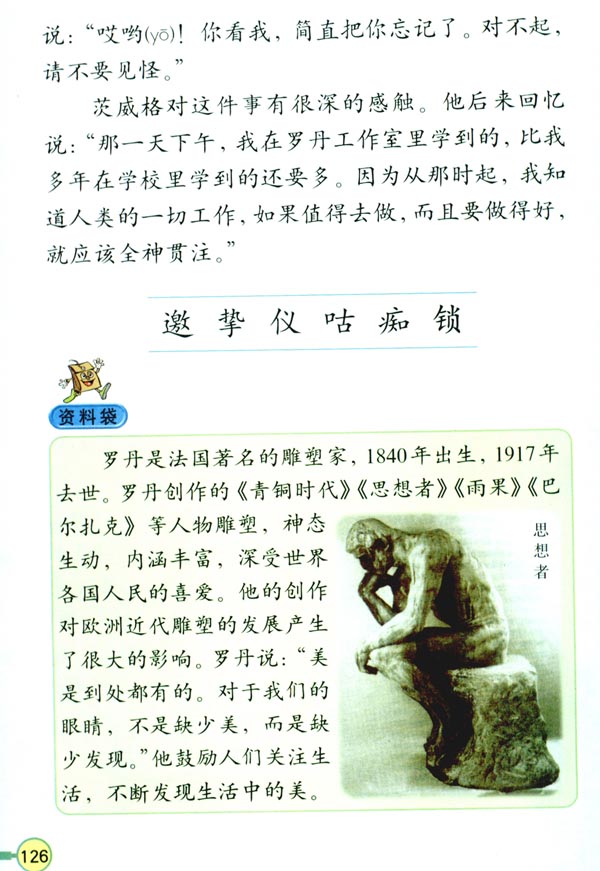 说：“哎哟(yō)！你看我，简直把你忘记了。对不起，
请不要见怪。”
茨威格对这件事有很深的感触。他后来回忆
说：“那一天下午，我在罗丹工作室里学到的，比我
多年在学校里学到的还要多。因为从那时起，我知
道人类的一切工作，如果值得去做，而且要做得好，
就应该全神贯注。”
邀 挚 仪 咕 痴 锁
资料袋
罗丹是法国著名的雕塑家，1840年出生，1917年
去世。罗丹创作的《青铜时代》《思想者》《雨果》《巴
尔扎克》等人物雕塑，神态
生动，内涵丰富，深受世界
各国人民的喜爱。他的创作
对欧洲近代雕塑的发展产生
了很大的影响。罗丹说：“美
是到处都有的。对于我们的
眼睛，不是缺少美，而是缺
少发现。”他鼓励人们关注生
活，不断发现生活中的美。
思想者
126